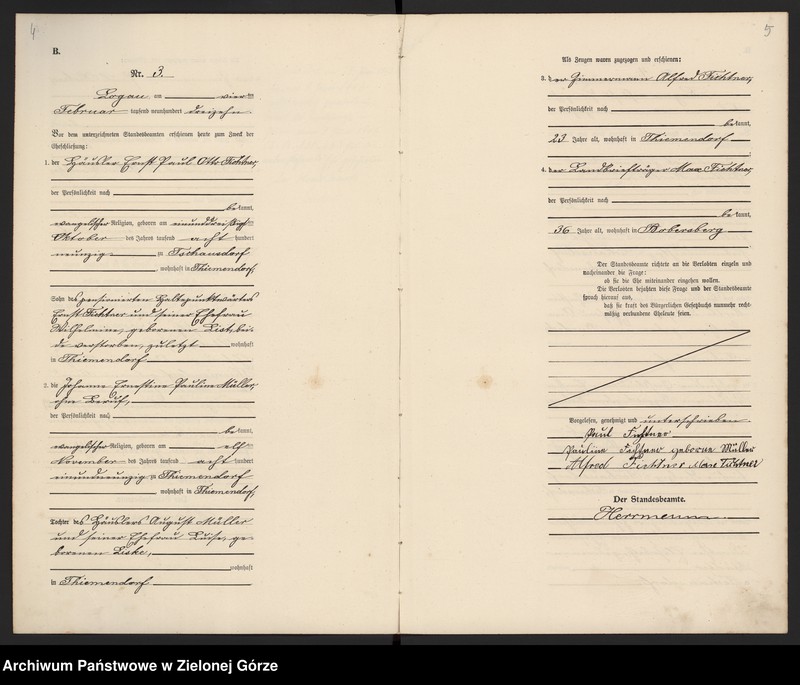 4
B.
Nr. 3.
Logau am vier
Februar tausend neunhundert dreizehn.
Vor dem unterzeichneten Standesbeamten erschienen heute zum Zweck der
Eheschließung:
1. der Häusler Ernst Paul Otto Fichtner,
der Persönlichkeit nach
be kannt,
evangelischer Religion, geboren am einunddreißigs
Oktober des Jahres tausend acht hundert
neunzig zu Tschausdorf
, wohnhaft in Thiemendorf,
Sohn des pensionierten Haltepunktwärters
Ernst Fichtner und seiner Ehefrau
Wilhelmine, geborenen List, bei-
de verstorben, zuletzt wohnhaft
in Thiemendorf
2. die Johanne Ernestine Pauline Müller,
ohne Beruf,
der Persönlichkeit nach
be kannt,
evangelischer Religion, geboren am elf
November des Jahres tausend acht hundert
einundneunzig zu Thiemendorf
wohnhaft in Thiemendorf,
Tochter des Häuslers August Müller
und seiner Ehefrau Luise, ge-
borenen Liske,
wohnhaft
in Thiemendorf
5
Als Zeugen waren zugezogen und erschienen:
3. der Zimmermann Alfred Fichtner,
der Persönlichkeit nach
be kannt,
23 Jahre alt, wohnhaft in Thiemendorf
4. der Landbriefträger Max Fichtner,
der Persönlichkeit nach
be kannt,
36 Jahre alt, wohnhaft in Bobersberg
Der Standesbeamte richtete an die Verlobten einzeln und
nacheinander die Frage:
ob sie die Ehe miteinander eingehen wollen.
Die Verlobten bejahten diese Frage und der Standesbeamte
sprach hierauf aus,
daß sie kraft des Bürgerlichen Gesetzbuchs nunmehr recht-
mäßig verbundene Eheleute seien.
Vorgelesen, genehmigt und unterschrieben
Paul Fichtner
Pauline Fichtner geborne Müller
Alfred Fichtner Max Fichtner
Der Standesbeamte.
Herrmann
Archiwum Państwowe w Zielonej Górze